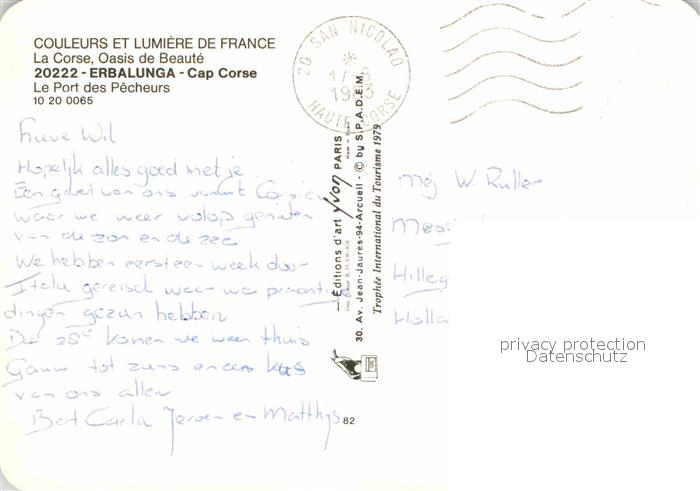 COULEURS ET LUMIÈRE DE FRANCE
La Corse, Oasis de Beauté
20222 - ERBALUNGA - Cap Corse
Le Port des Pêcheurs
10 20 0065
20 SAN NICOLAO
1983
HAUTE CORSE
Lieve Wil
Hopelijk alles goed met je.
Een groet van ons vanuit Corsica
waar we weer volop genieten
van de zon en de zee
We hebben eerst een week door
Italië gereisd waar we prachtige
dingen gezien hebben
De 25e komen we weer thuis
Gauw tot ziens en een kus
van ons allen
Bert Carla Jeroen en Matthijs
82
Éditions d'art yvon PARIS
30. Av. Jean-Jaurès-94-Arcueil - © by S.P.A.D.E.M.
Trophée International du Tourisme 1979
Mej W. Ruller
Hilleg
Holla
privacy protection
Datenschutz